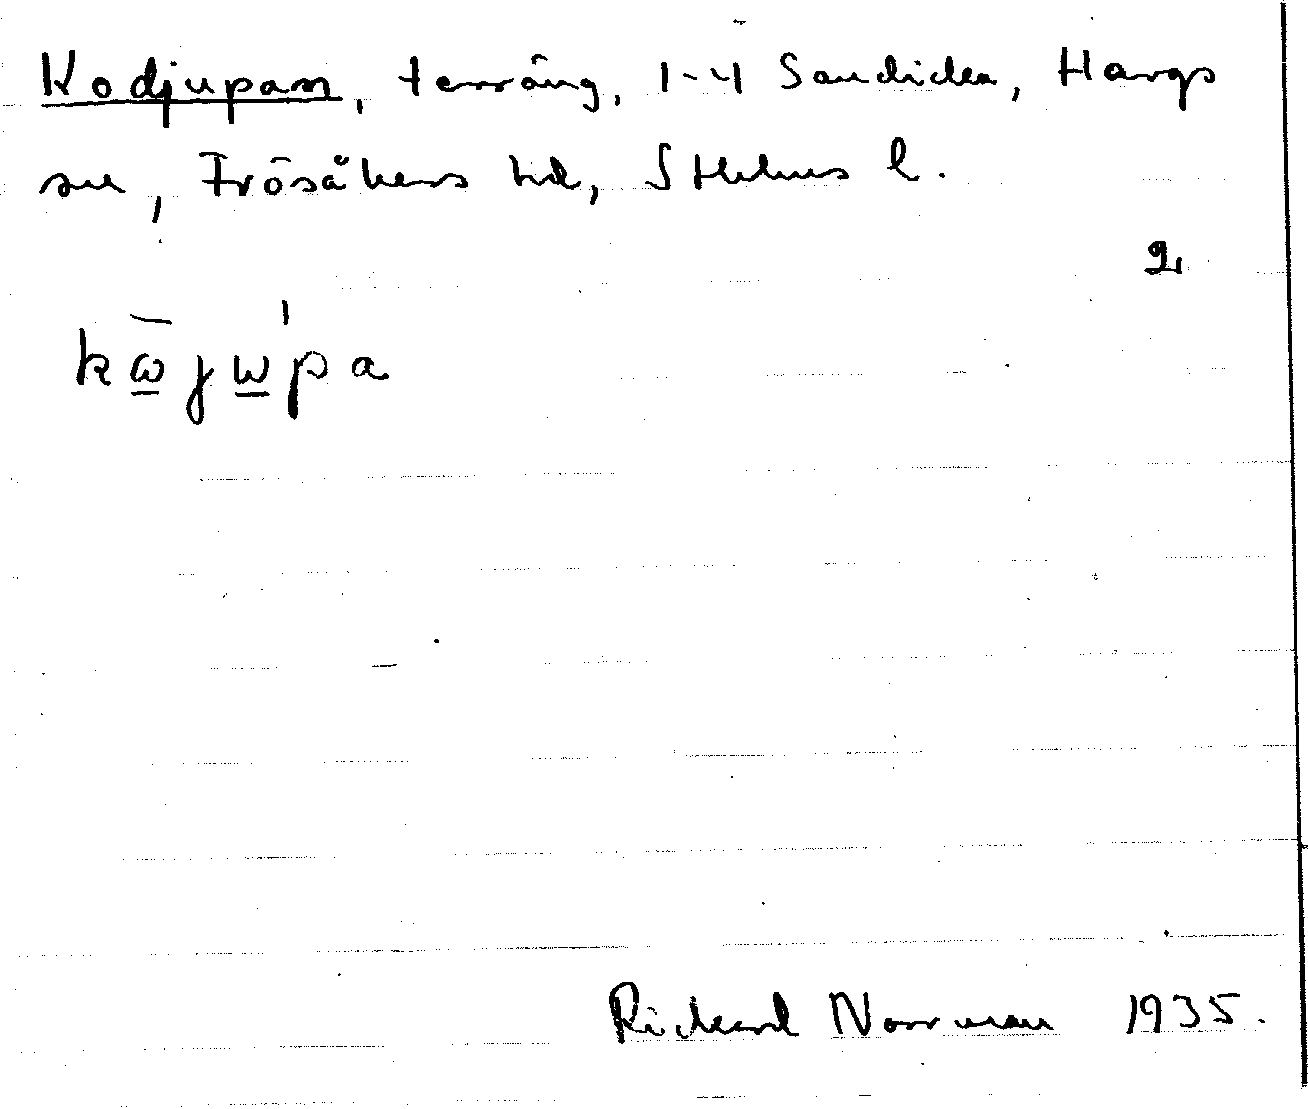 Kodjupan, terräng, 1-4 Sandika, Hargs
sn, Frösåkers hd, Sthlms l.
2
kω̱̄jω̱'pa
Rickard Norrman 1935.